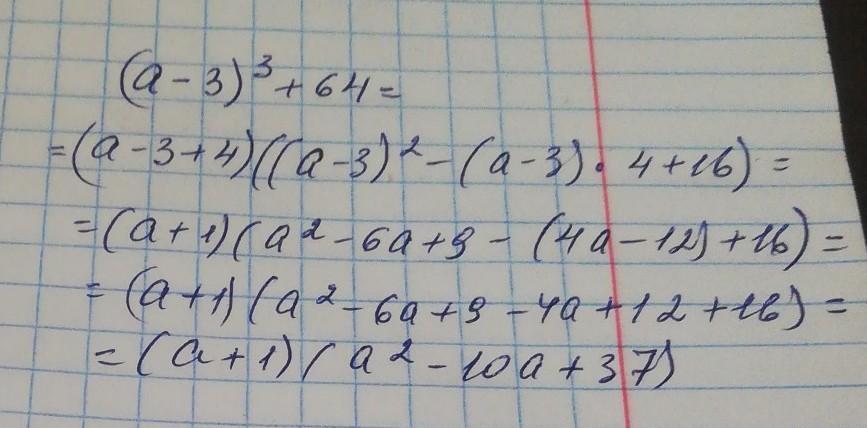 (a-3)³+64=
=(a-3+4)((a-3)²-(a-3)·4+16)=
=(a+1)(a²-6a+9-(4a-12)+16)=
=(a+1)(a²-6a+9-4a+12+16)=
=(a+1)(a²-10a+37)